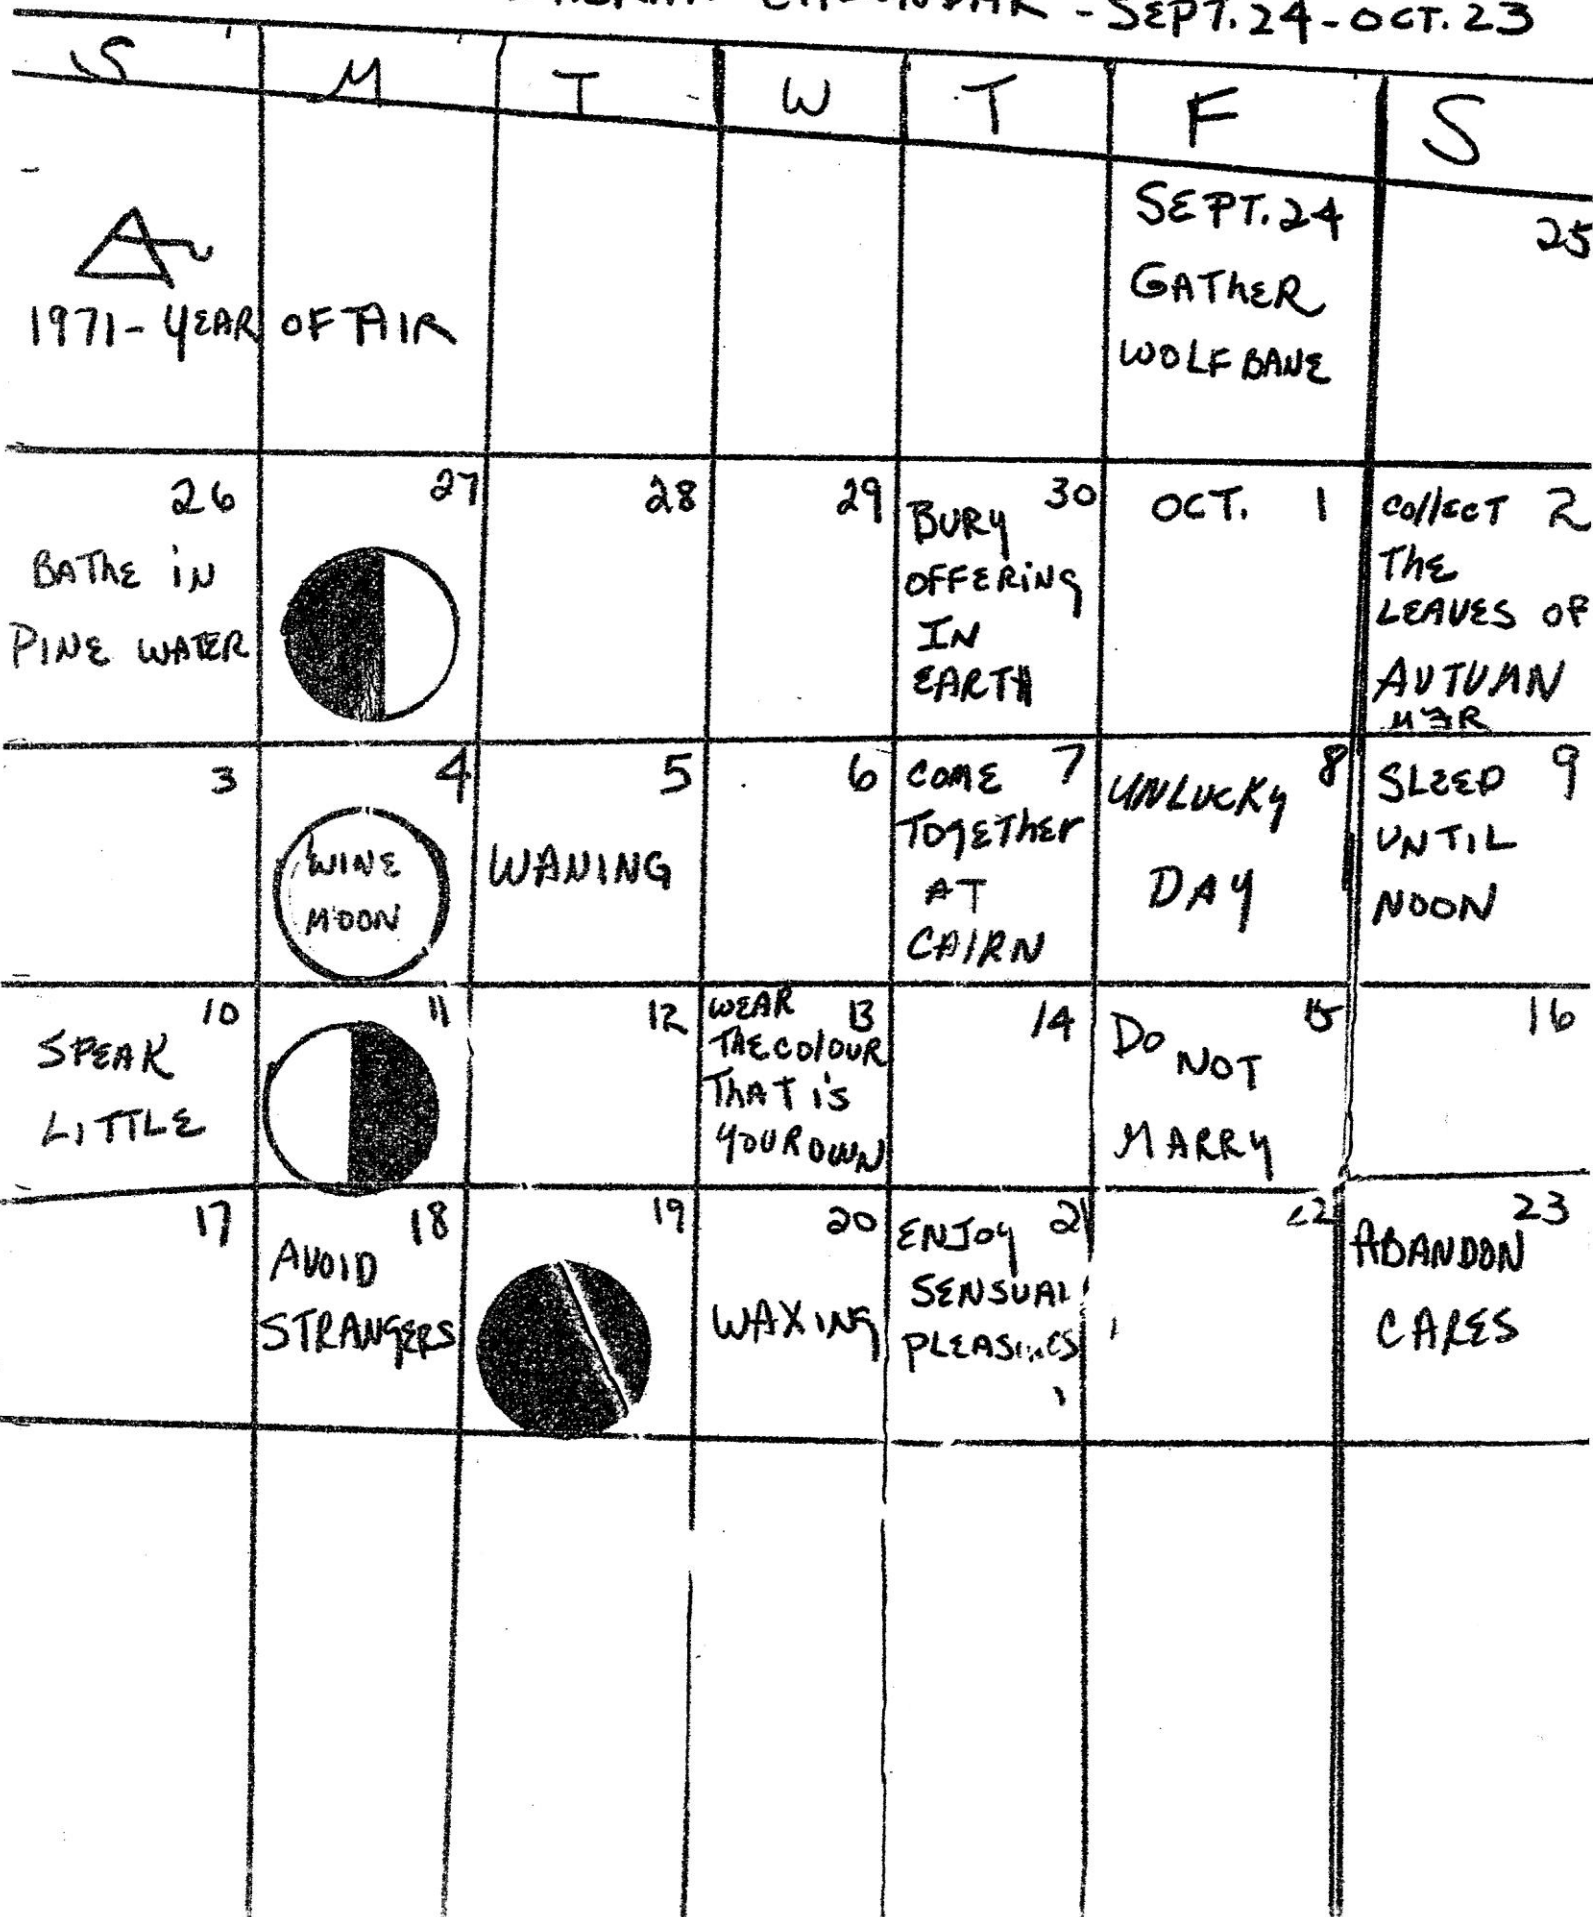 CALENDAR - SEPT. 24 - OCT. 23
S M T W T F S
1971 - YEAR OF AIR
SEPT. 24
GATHER
WOLFBANE
25
26
BATHE IN
PINE WATER
27
28
29
30
BURY
OFFERING
IN
EARTH
OCT. 1
COLLECT 2
THE
LEAVES OF
AUTUMN
3
4
WINE
MOON
5
WANING
6
COME 7
TOGETHER
AT
CAIRN
UNLUCKY 8
DAY
SLEEP 9
UNTIL
NOON
10
SPEAK
LITTLE
11
12
WEAR 13
THE COLOUR
THAT IS
YOUR OWN
14
DO 15
NOT
MARRY
16
17
18
AVOID
STRANGERS
19
20
WAXING
ENJOY 21
SENSUAL
PLEASURES
22
23
ABANDON
CARES